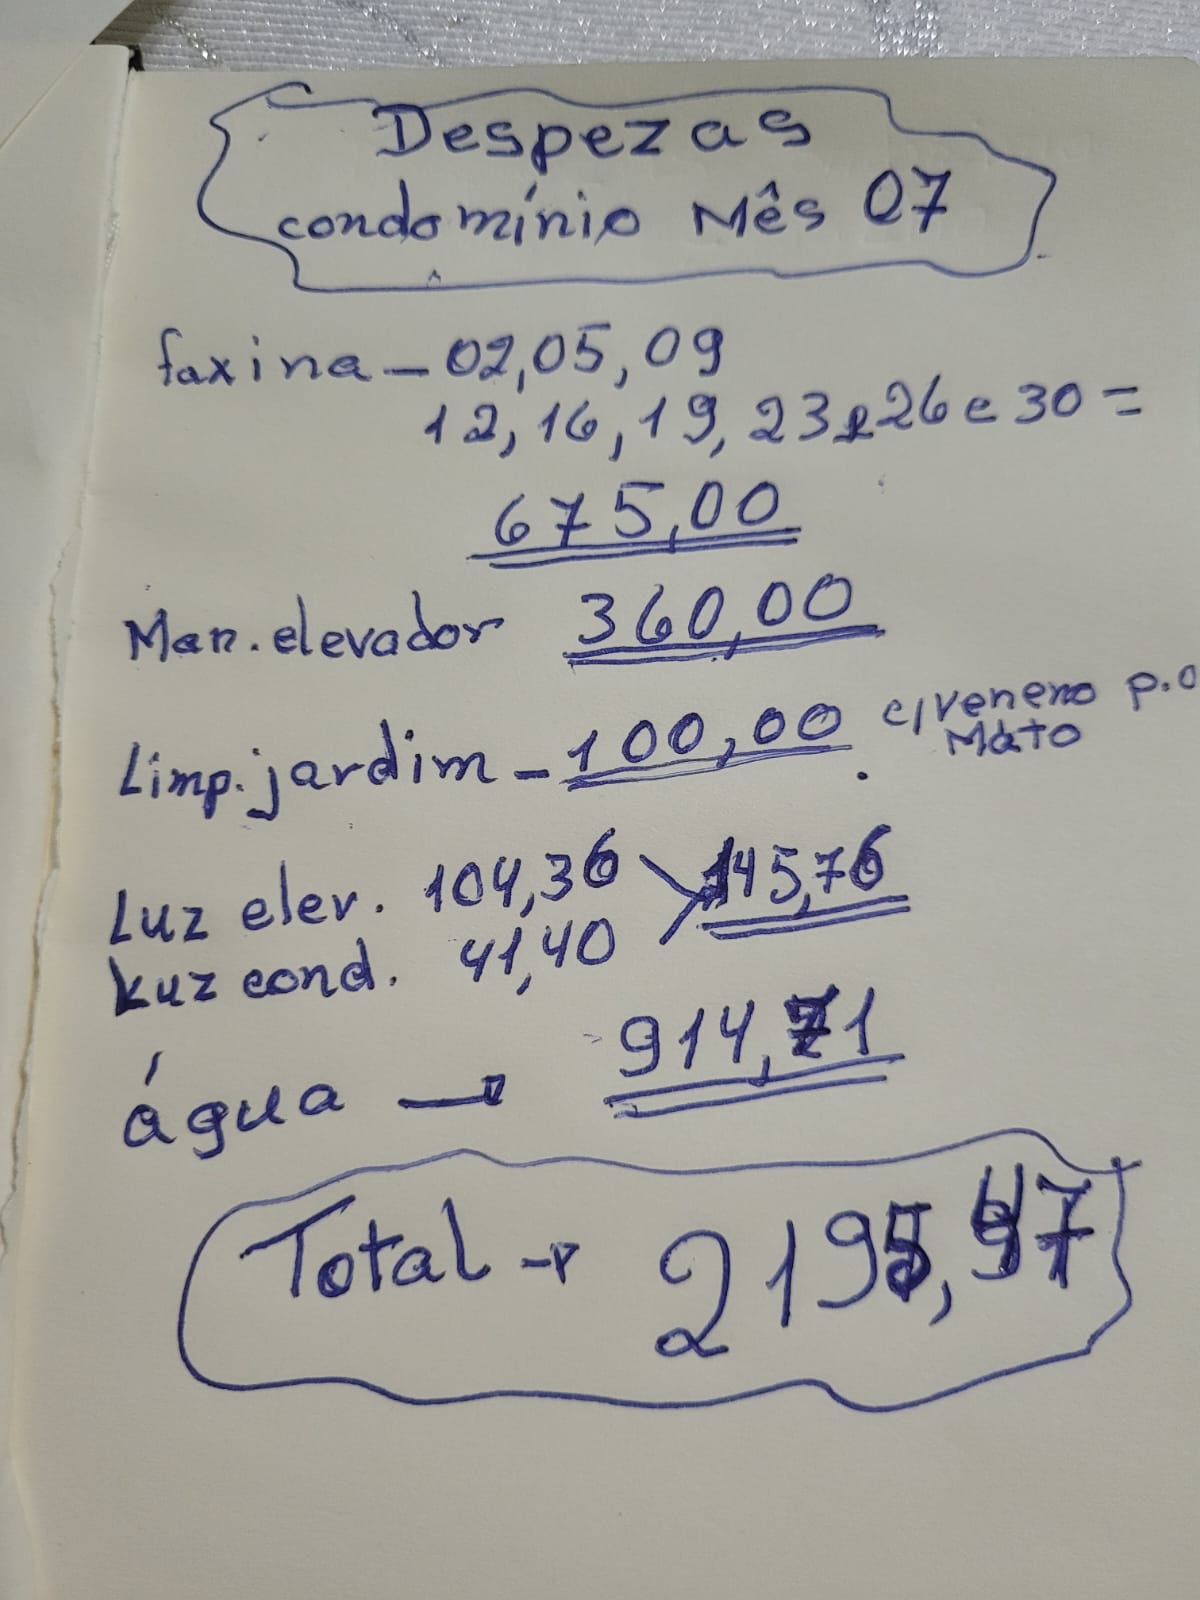 Despezas
condomínio Mês 07
faxina - 02, 05, 09
12, 16, 19, 23 e 26 e 30 =
675,00
Man. elevador 360,00
Limp. jardim - 100,00 c/veneno p. o
Mato
Luz elev. 104,36 145,76
Luz cond. 41,40
água → 914,71
Total → 2195,47